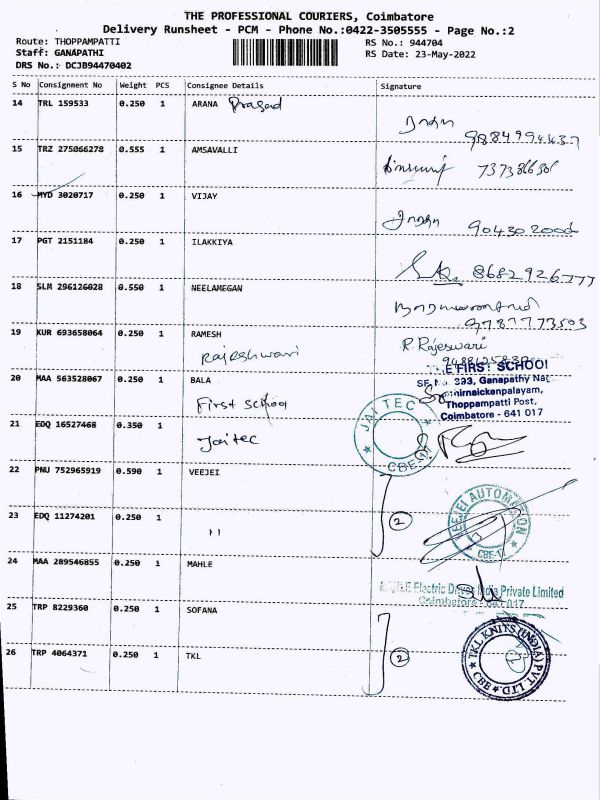 THE PROFESSIONAL COURIERS, Coimbatore
Delivery Runsheet - PCM - Phone No.:0422-3505555 - Page No.:2
Route: THOPPAMPATTI
RS No.: 944704
Staff: GANAPATHI
RS Date: 23-May-2022
DRS No.: DCJB94470402
S No Consignment No Weight PCS Consignee Details Signature
14 TRL 159533 0.250 1 ARANA Prasad
9884994437
15 TRZ 275066278 0.555 1 AMSAVALLI
16 MYD 3020717 0.250 1 VIJAY
17 PGT 2151184 0.250 1 ILAKKIYA
8682926777
18 SLM 296126028 0.550 1 NEELAMEGAN
9787773503
19 KUR 693658064 0.250 1 RAMESH
Rajeshwari
R. Rajeswari
20 MAA 563528067 0.250 1 BALA
First school
THE FIRST SCHOOL
SF No 293, Ganapathy Nag
Thoppampatti Post,
Coimbatore - 641 017
21 EDQ 16527468 0.350 1
Jaitec
JAI TEC
CBE
22 PNU 752965919 0.590 1 VEEJEI
2
VEEJEI AUTOMATION
CBE-1
23 EDQ 11274201 0.250 1
"
24 MAA 289546855 0.250 1 MAHLE
MAHLE Electric Drives India Private Limited
Coimbatore - 641 017
25 TRP 8229360 0.250 1 SOFANA
26 TRP 4064371 0.250 1 TKL
2
TKL KNITS (INDIA) PVT. LTD.
CBE